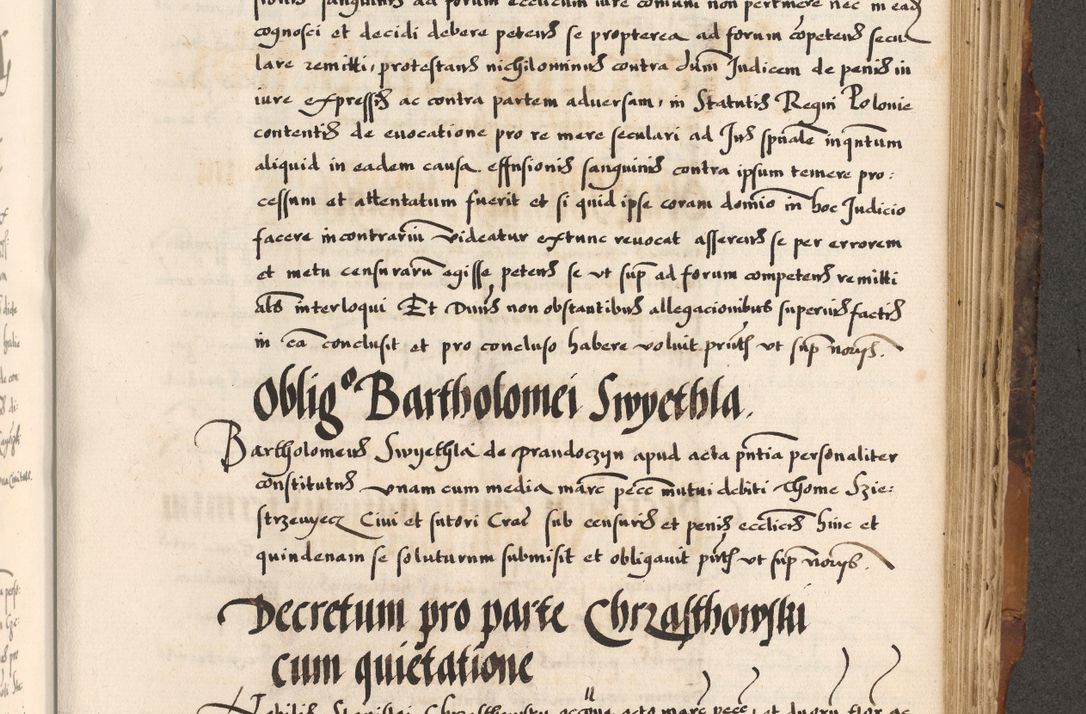 sionis sanguinis ad forum ecclicum iure comuni non pertinere nec in ead
cognosci et decidi debere petens se propterea ad forum cōpetens secu
lare remitti, protestans nichilominus contra dūm Judicem de penis in
iure expressis ac contra partem adversam, in Statutis Regni Polonie
contentis de evocatione pro re mere seculari ad Jus spūale inqntum
aliquid in eadem causa effusionis sanguinis contra ipsum temere pro:
cessum et attentatum fuerit et si quid ipse coram domīo in hoc Judicio
facere in contrariū videatur extunc revocat asserens se per errorem
et metu censurarū egisse petens se ut sup ad forum competens remitti
als interloqui Et Dnus non obstantibus allegacionibus superius factis
in ca conclusit et pro concluso habere voluit pntibus ut sup norijs.
Obligo Bartholomei Swyethla.
Bartholomeus Swyethla de prandoczyn apud acta pntia personaliter
constitutus unam cum media marc pecc mutui debiti Thome Szie:
strzewycz Civi et sutori Crac sub censuris et penis ecclicis hinc et
quindenam se soluturum submisit et obligavit pntibus ut sup norijs.
Decretum pro parte Chrzasthowski
cum quietatione
Nobilis Stanislai Chrzasthowsky octo marc pecc et duoru flor ac